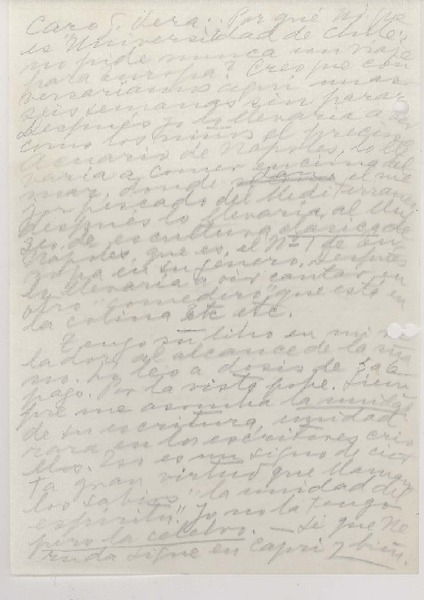 Caro G. Vera. Por qué Ud. que
es Universidad de Chile,
no pide nunca un viaje
para Europa? Creo que con
versaríamos aquí unas
seis semanas sin parar.
Después yo lo llevaría a ver
como los niños el
Acuario de Nápoles, lo lle
varía a comer encima del
mar, donde el me
jor pescado del Mediterráneo
después lo llevaría al Mu
seo de escultura clásica de
Nápoles, que es el Nº 1 de Eu
ropa en su género. Después
lo llevaría a oir cantar en
otro "comedero" que está en
la colina etc etc.
Tengo su libro en mi ve
lador, al alcance de la ma
no. Lo leo a dosis de
pago. Por la vista pobre. Siem
pre me asombra la unidad
de su escritura, unidad
rara en los escritores crio
llos. Eso es un signo de cier
ta gran virtud que llaman
los sabios "la unidad del
espíritu". Yo no la tengo
pero la celebro. — Sé que Ne
ruda sigue en Capri y bien.